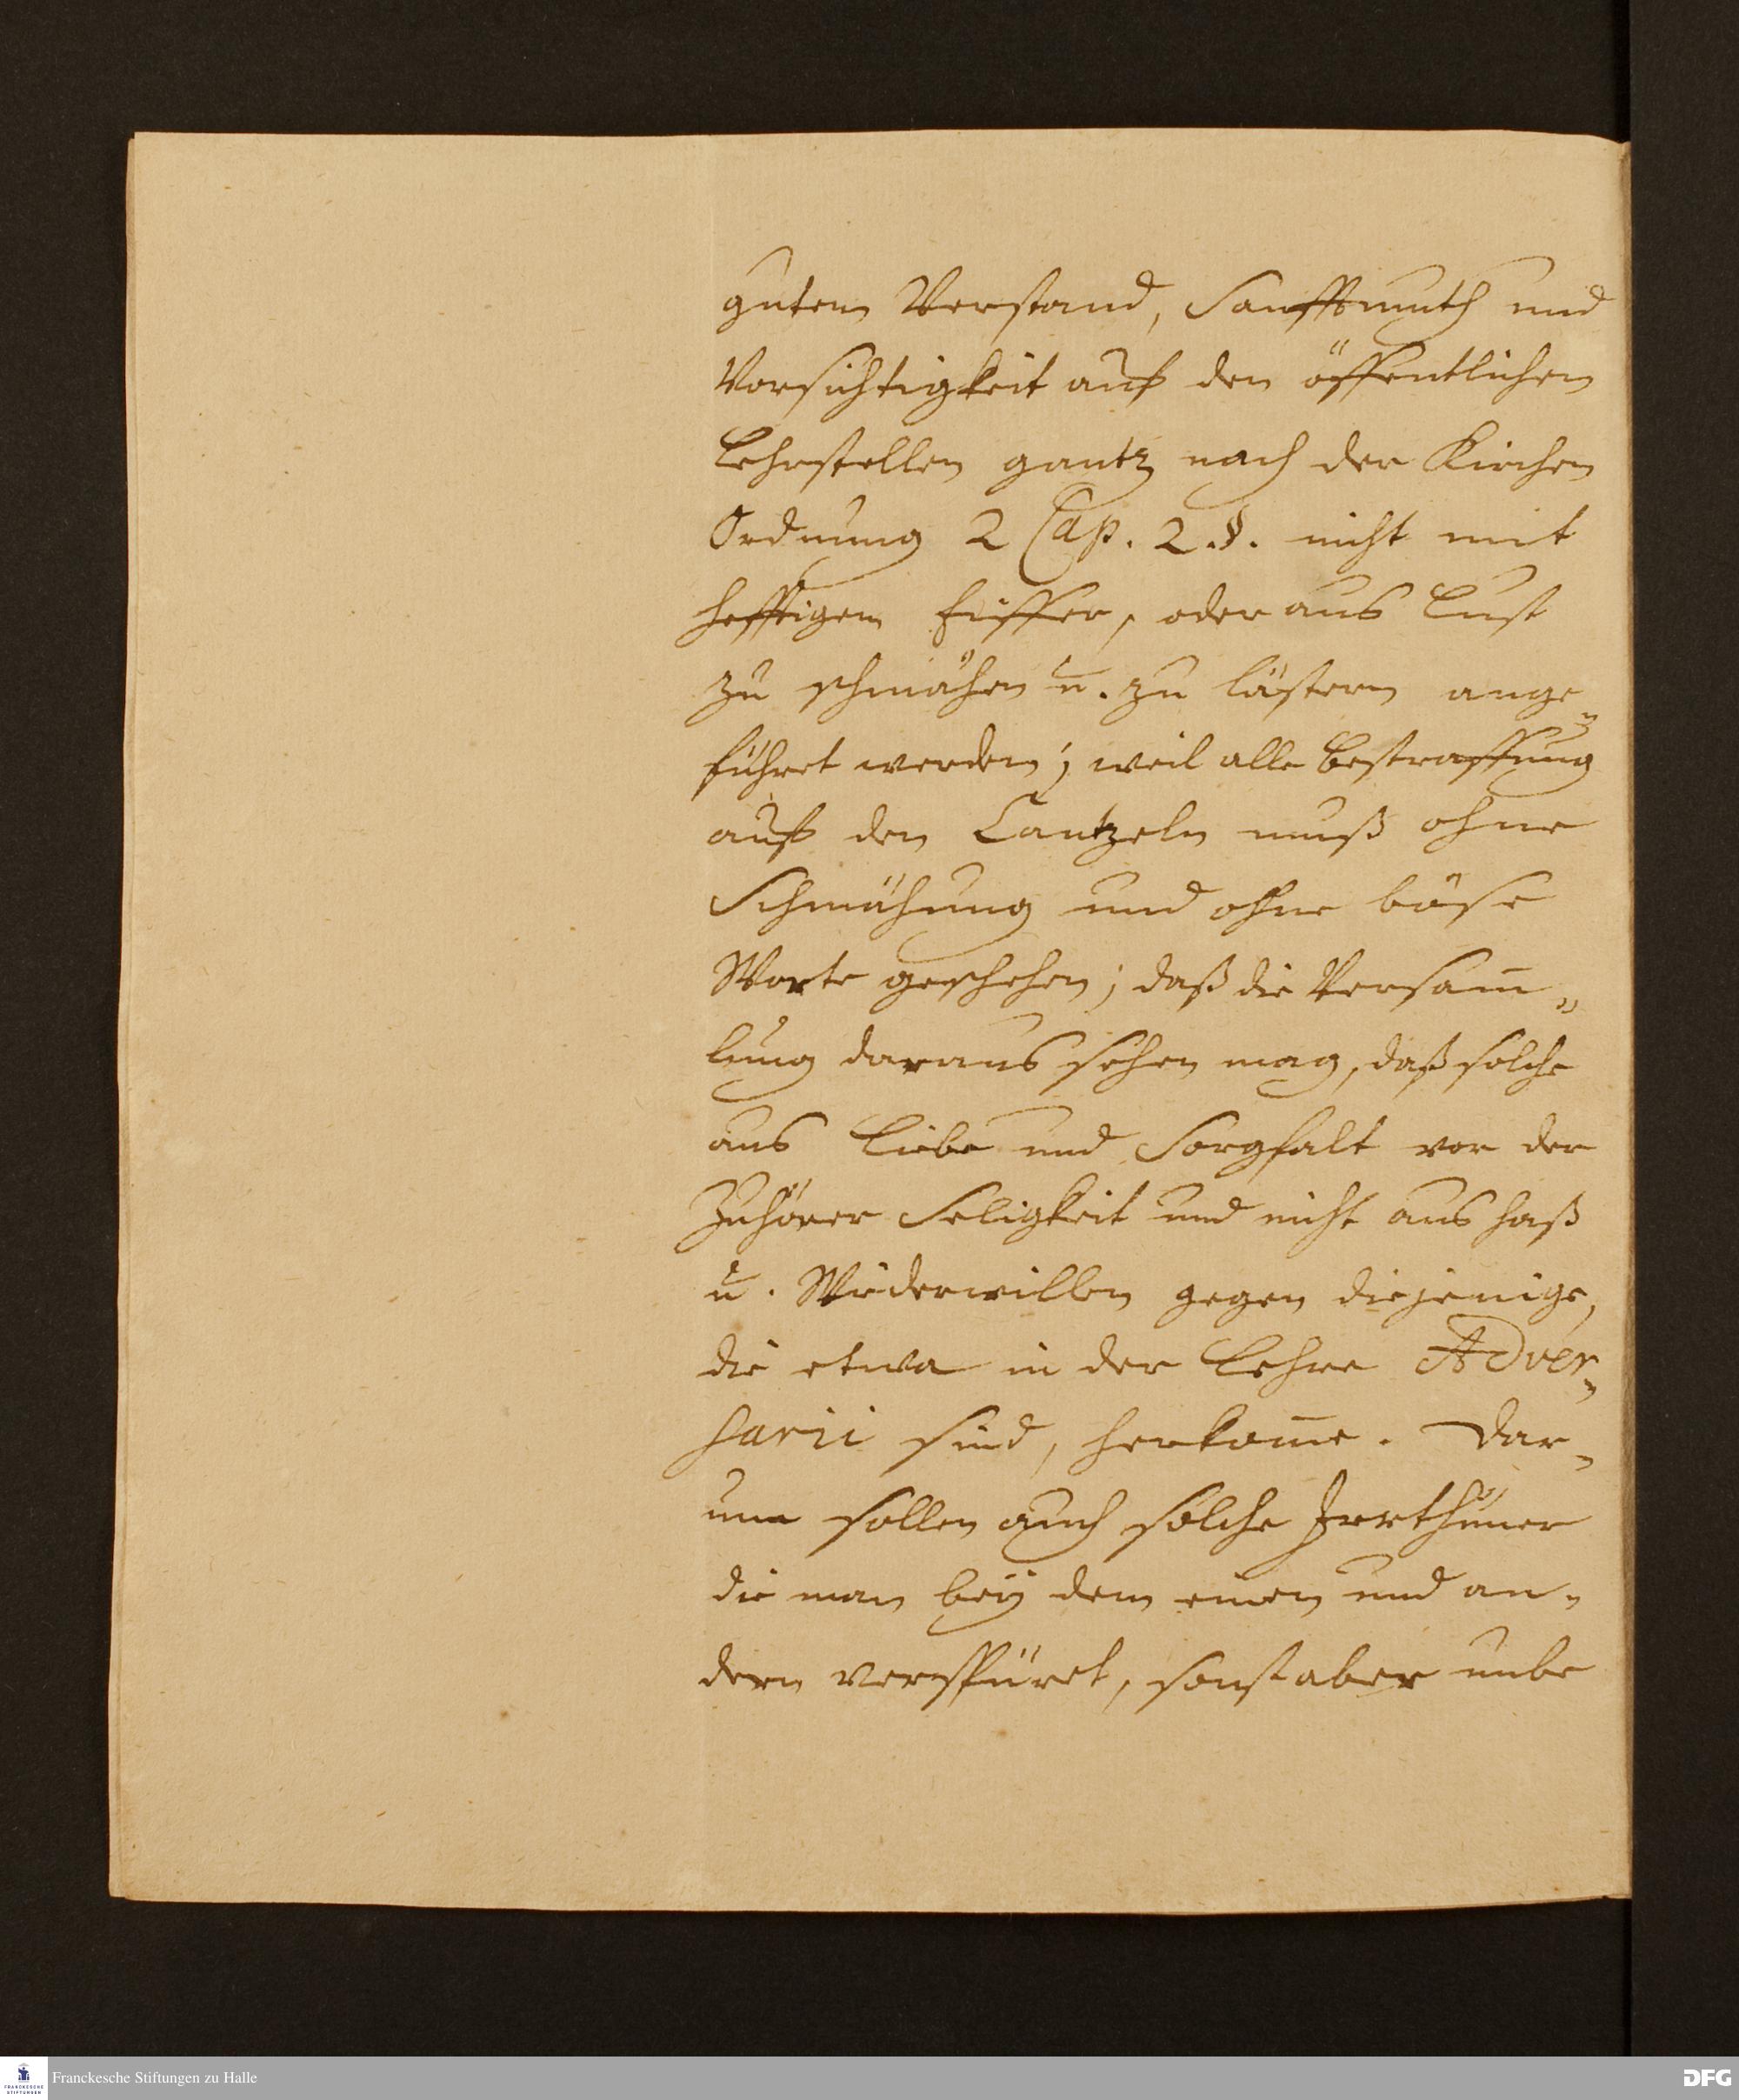 gutem Verstand, Sanfftmuth und
Vorsichtigkeit auf den öffentlichen
Lehrstellen gantz nach der Kirchen
Ordnung 2 Cap. 2.§. nicht mit
hefftigem Eiffer, oder aus Lust
zu schmähen u. zu lästern ange„
führet werden; weil alle Bestraffung
auf den Cantzeln muß ohne
Schmähung und ohne böse
Worte geschehen; daß die Versam̅„
lung daraus sehen mag, daß solche
aus Liebe und Sorgfalt vor der
Zuhörer Seligkeit und nicht aus Haß
u. Wiederwillen gegen diejenige,
die etwa in der Lehre Adver„
sarii sind, herkom̅e. Dar„
um sollen auch solche Irrthümer
die man bey dem einen und an„
dern verspüret, sonst aber unbe
Franckesche Stiftungen zu Halle
FRANCKESCHE
STIFTUNGEN
DFG